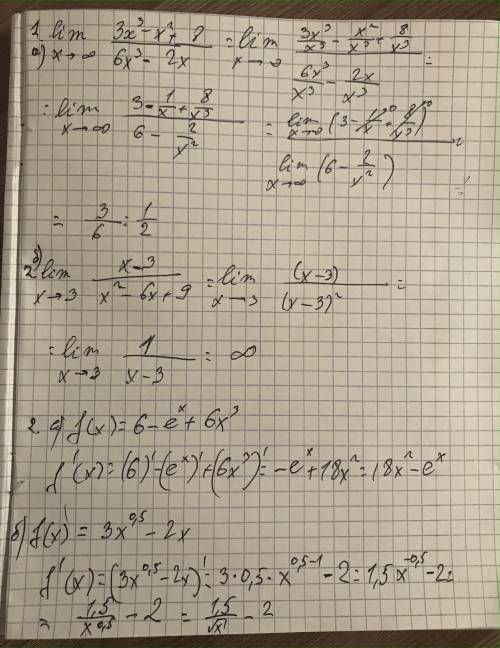 1. а) lim x→∞ (3x³ - x² + 8)/(6x³ - 2x) = lim x→∞ (3x³/x³ - x²/x³ + 8/x³)/(6x³/x³ - 2x/x³) =
= lim x→∞ (3 - 1/x + 8/x³)/(6 - 2/x²) = lim x→∞ (3 - 1/x + 8/x³)/lim x→∞ (6 - 2/x²) =
= 3/6 = 1/2
2 б) lim x→3 (x-3)/(x² - 6x + 9) = lim x→3 (x-3)/(x-3)² =
= lim x→3 1/(x-3) = ∞
2 а) f(x) = 6 - eˣ + 6x³
f'(x) = (6)' - (eˣ)' + (6x³)' = -eˣ + 18x² = 18x² - eˣ
б) f(x) = 3x^0,5 - 2x
f'(x) = (3x^0,5 - 2x)' = 3·0,5·x^0,5-1 - 2 = 1,5x^-0,5 - 2 =
= 1,5/x^0,5 - 2 = 1,5/√x - 2